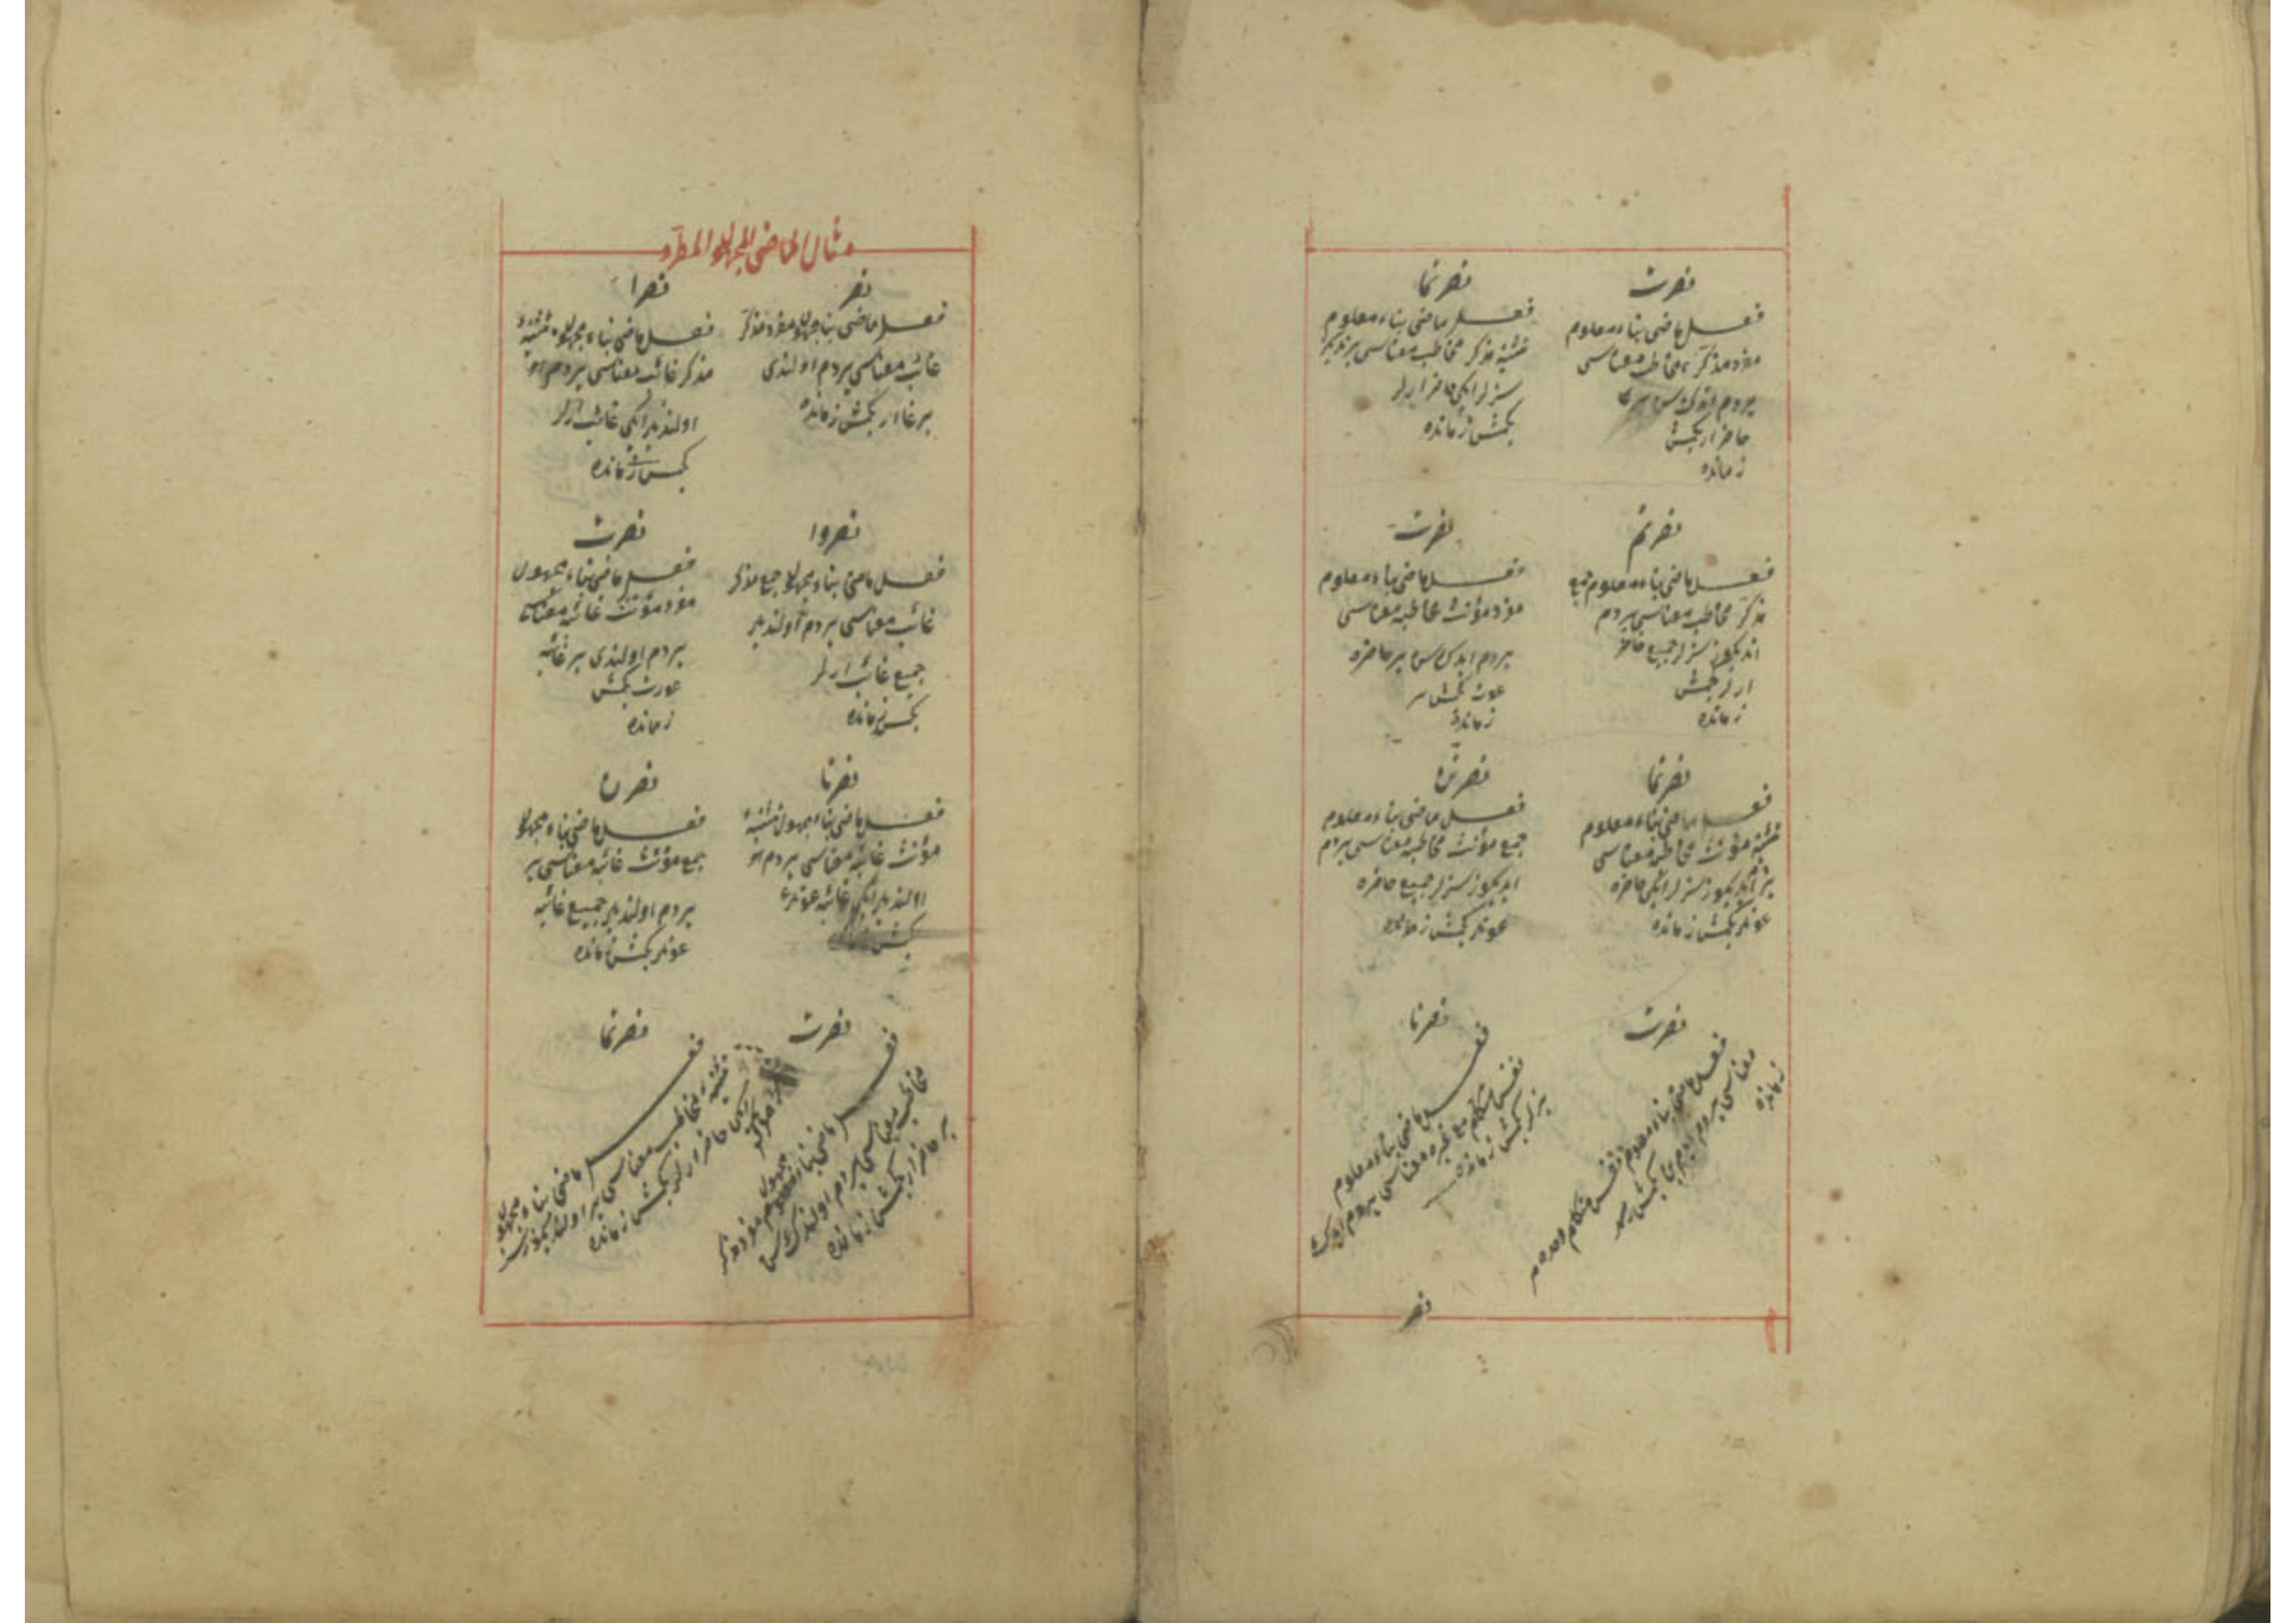 نصرت
فعل ماضی بناء معلوم
مفرد مذکر مخاطب معناسی
یردم
حاضر ار کچمش
زمانده
نصرتما
فعل ماضی بناء معلوم
تثنیه مذکر مخاطب معناسی
سزلر ایکی حاضر ارلر
کچمش زمانده
نصرتم
فعل ماضی بناء معلوم جمع
مذکر مخاطب معناسی یردم
سزلر جمیع حاضر
ارلر کچمش
زمانده
نصرت
فعل ماضی بناء معلوم
مفرد مؤنث مخاطبه معناسی
یردم ایدک سن بر حاضره
عورت کچمش
زمانده
نصرتما
فعل ماضی بناء معلوم
تثنیه مؤنث مخاطبه معناسی
سزلر ایکی حاضره
عورتلر کچمش زمانده
نصرتن
فعل ماضی بناء معلوم
جمع مؤنث مخاطبه معناسی یردم
ایدیکوز سزلر جمیع حاضره
عورتلر کچمش زمانده
نصرت
فعل ماضی بناء معلوم نفس متکلم وحده
معناسی یردم ایدم بن کچمش
زمانده
نصرنا
فعل ماضی بناء معلوم
نفس متکلم مع غیره معناسی یردم ایدک
بزلر کچمش زمانده
نصر
مثال الماضی المجهول المطرد
نصر
فعل ماضی بناء مجهول مفرد مذکر
غائب معناسی یردم اولندی
بر غائب ار کچمش زمانده
نصرا
فعل ماضی بناء مجهول تثنیه
مذکر غائب معناسی یردم
اولندیلر ایکی غائب ارلر
کچمش زمانده
نصروا
فعل ماضی بناء مجهول جمع مذکر
غائب معناسی یردم اولندیلر
جمیع غائب ارلر
کچمش زمانده
نصرت
فعل ماضی بناء مجهول
مفرد مؤنث غائبه معناسی
یردم اولندی بر غائبه
عورت کچمش
زمانده
نصرتا
فعل ماضی بناء مجهول تثنیه
مؤنث غائبه معناسی یردم
اولندیلر ایکی غائبه عورتلر
کچمش
نصرن
فعل ماضی بناء مجهول
جمع مؤنث غائبه معناسی بر
یردم اولندیلر جمیع غائبه
عورتلر کچمش زمانده
نصرت
فعل ماضی بناء مجهول مفرد مذکر
مخاطب معناسی یردم اولندک سن
بر حاضر ار کچمش زمانده
نصرتما
فعل ماضی بناء مجهول
تثنیه مخاطب معناسی یر اولندیکوز سز
ایکی حاضر ارلر کچمش زمانده